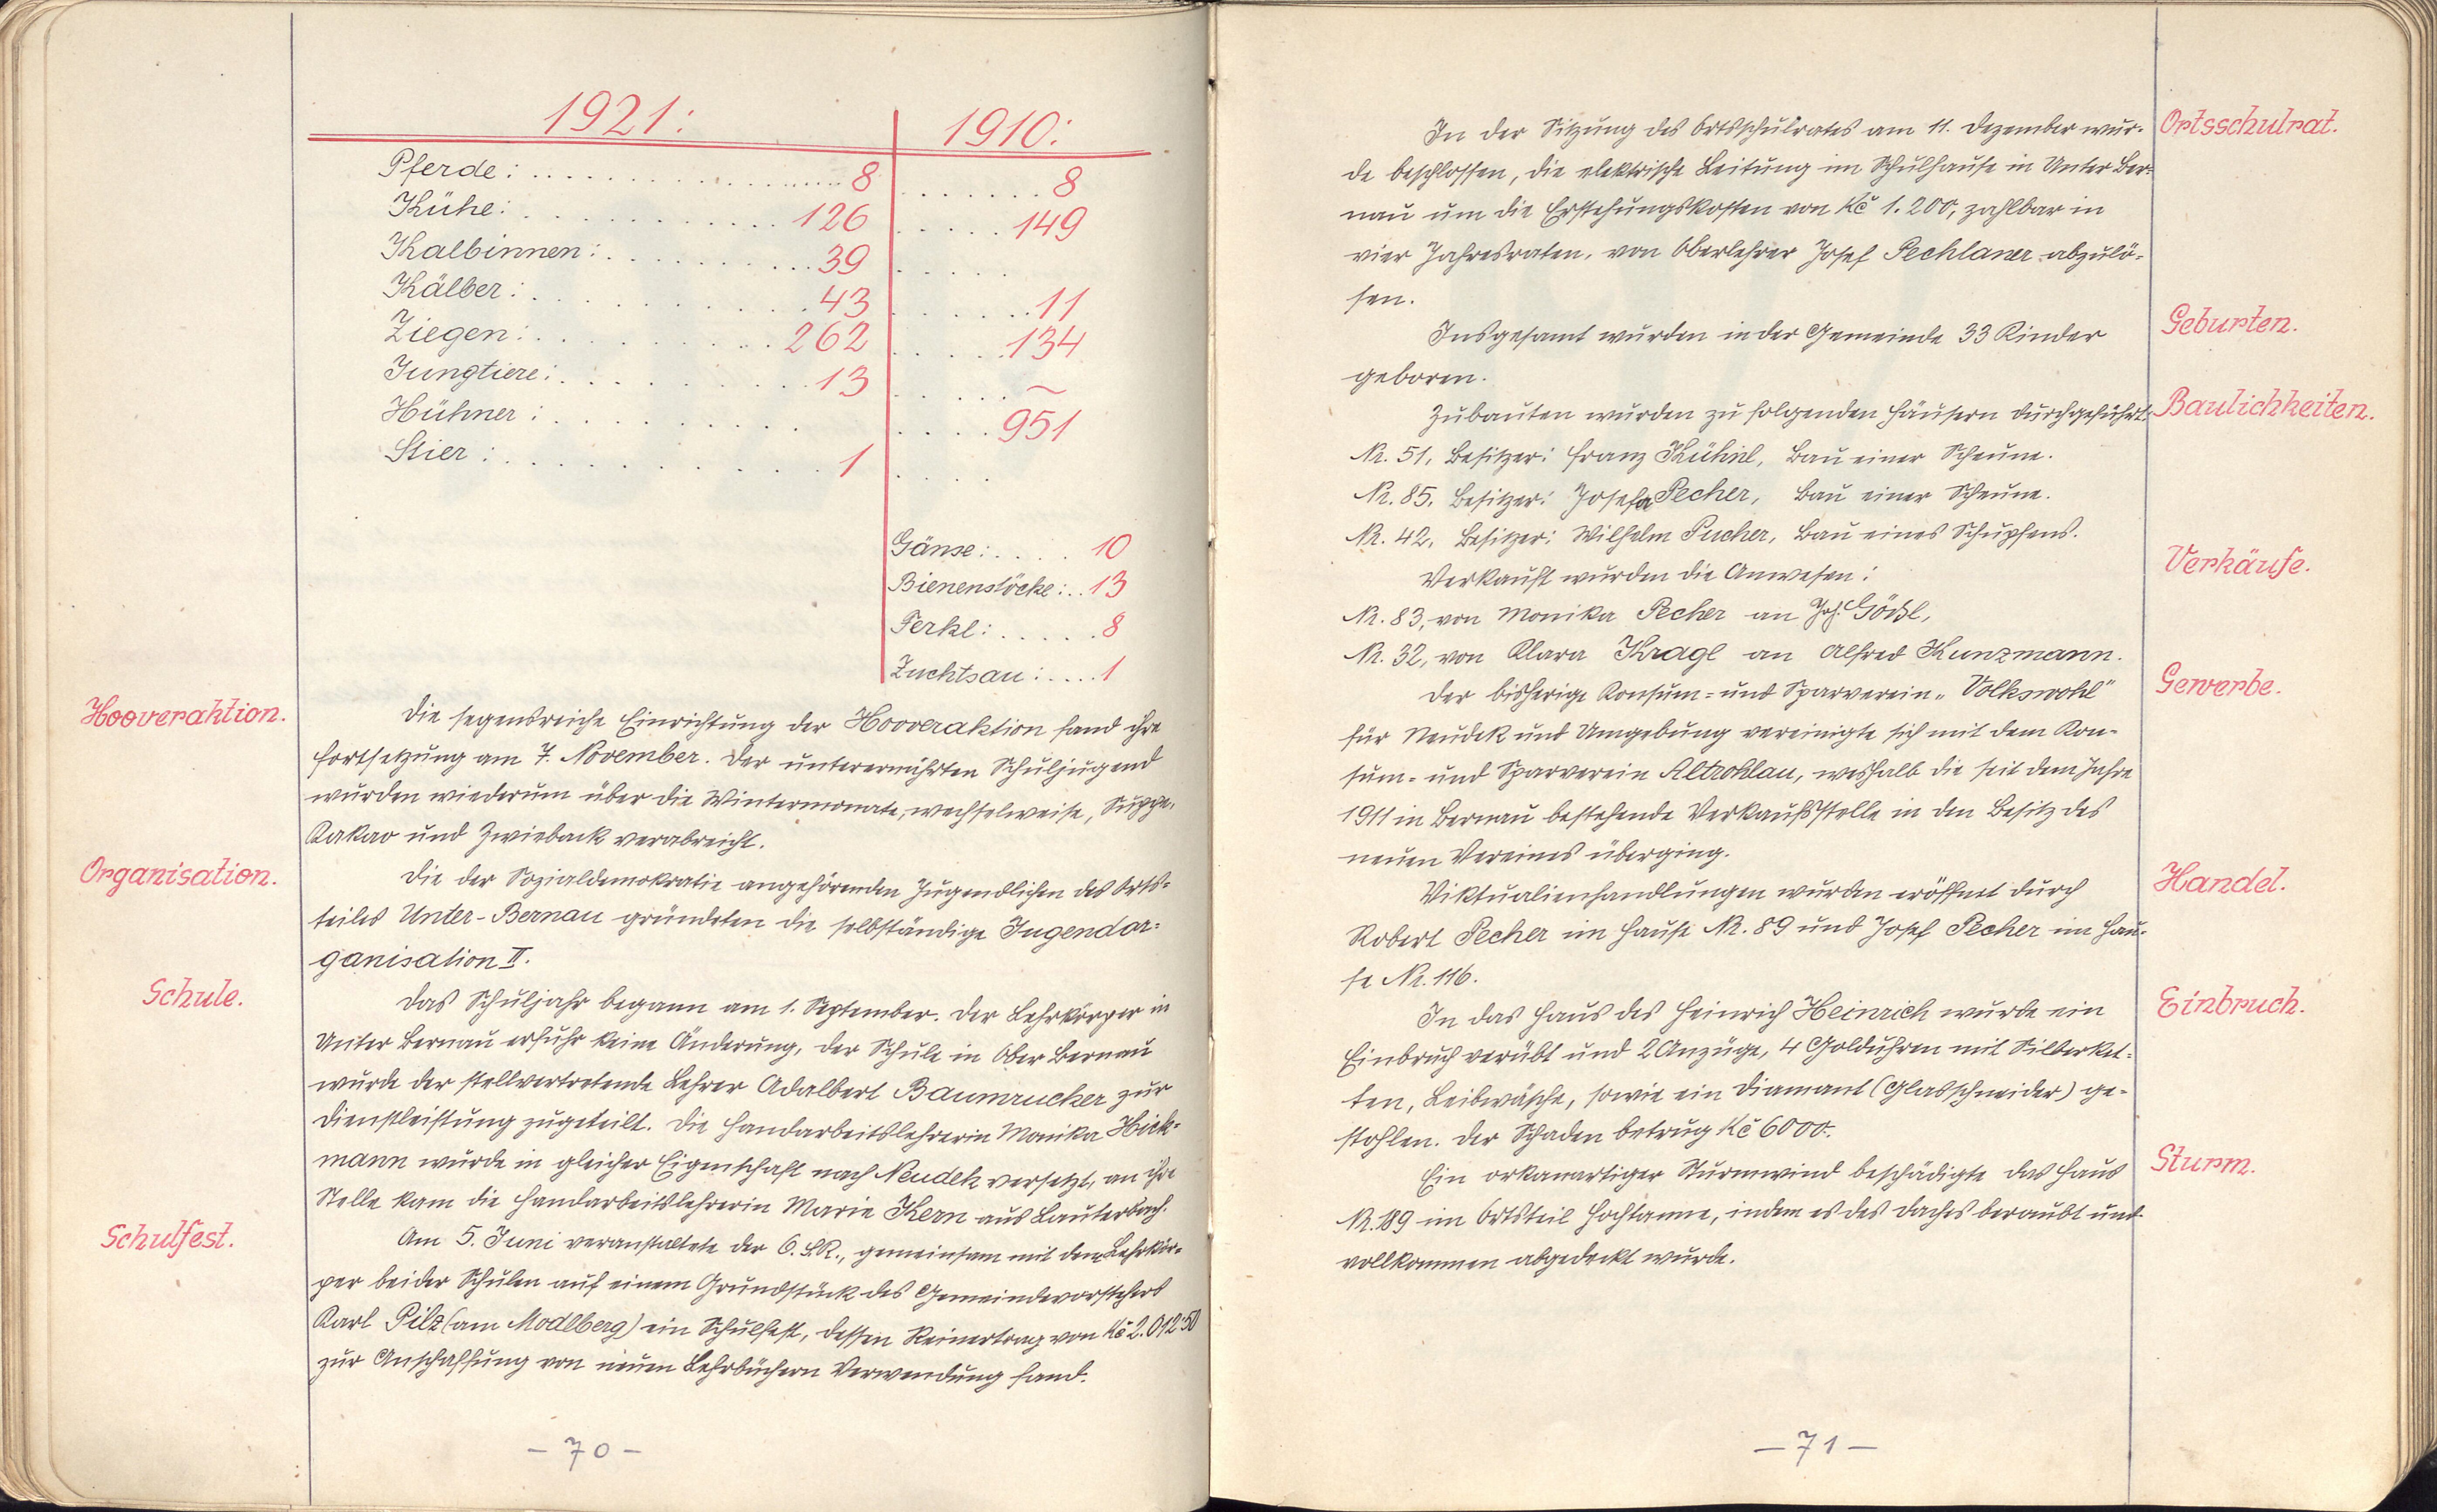 1921: 1910:
Pferde: .................... 8 ....... 8
Kühe: ............. 126 ..... 149
Kalbinnen: .......... 39 .....
Kälber: ............ 43 ....... 11
Ziegen: .......... 262 ..... 134
Jungtiere: .......... 13 ..... ~
Hühner: .......... .... 951
Stier: ............. 1 ....
Gänse: .... 10
Bienenstöcke: .. 13
Ferkl: ..... 8
Zuchtsau: .... 1
Hooveraktion.
Die segensreiche Einrichtung der Hooveraktion fand ihre
Fortsetzung am 7. November. Der unterernährten Schuljugend
wurden wiederum über die Wintermonate, wechselweise, Suppe,
Kakao und Zwieback verabreicht.
Organisation.
Die der Sozialdemokratie angehörenden Jugendlichen des Orts-
teiles Unter-Bernau gründeten die selbständige Jugendor-
ganisation II.
Schule.
Das Schuljahr begann am 1. September. Der Lehrkörper in
Unter Bernau erfuhr keine Änderung, der Schule in Ober Bernau
wurde der stellvertretende Lehrer Adalbert Baumrucker zur
Dienstleistung zugeteilt. Die Handarbeitslehrerin Monika Hick-
mann wurde in gleicher Eigenschaft nach Neudek versetzt, an ihre
Stelle kam die Handarbeitslehrerin Marie Kern aus Lauterbach.
Schulfest.
Am 5. Juni veranstaltete der O.S.R., gemeinsam mit dem Lehrkör-
per beider Schulen auf einem Grundstück des Gemeindevorstehers
Karl Pilz (am Modlberg) ein Schulfest, dessen Reinertrag von Kč 2.012·50
zur Anschaffung von neuen Lehrbüchern Verwendung fand.
- 70 -
Ortsschulrat.
In der Sitzung des Ortsschulrates am 11. Dezember wur-
de beschlossen, die elektrische Leitung im Schulhause in Unter Ber-
nau um die Erstehungskosten von Kč 1.200, zahlbar in
vier Jahresraten, von Oberlehrer Josef Pechlaner abzulö-
sen.
Geburten.
Insgesamt wurden in der Gemeinde 33 Kinder
geboren.
Baulichkeiten.
Zubauten wurden zu folgenden Häusern durchgeführt:
Nr. 51, Besitzer: Franz Kühnl, Bau einer Scheune.
Nr. 85, Besitzer: Josefa Pecher, Bau einer Scheune.
Nr. 42, Besitzer: Wilhelm Pucher, Bau eines Schupfens.
Verkäufe.
Verkauft wurden die Anwesen:
Nr. 83, von Monika Pecher an Jos. Gößl,
Nr. 32, von Klara Kragl an Alfred Kunzmann.
Gewerbe.
Der bisherige Konsum- und Sparverein „Volkswohl"
für Neudek und Umgebung vereinigte sich mit dem Kon-
sum- und Sparverein Altrohlau, weshalb die seit dem Jahre
1911 in Bernau bestehende Verkaufsstelle in den Besitz des
neuen Vereines überging.
Handel.
Viktualienhandlungen wurden eröffnet durch
Robert Pecher im Hause Nr. 89 und Josef Pecher im Hau-
se Nr. 116.
Einbruch.
In das Haus des Heinrich Heinrich wurde ein
Einbruch verübt und 2 Anzüge, 4 Golduhren mit Silberket-
ten, Leibwäsche, sowie ein Diamant (Glasschneider) ge-
stohlen. Der Schaden betrug Kč 6000.-
Sturm.
Ein orkanartiger Sturmwind beschädigte das Haus
Nr. 189 im Ortsteil Hochtanne, indem es des Daches beraubt und
vollkommen abgedeckt wurde.
- 71 -